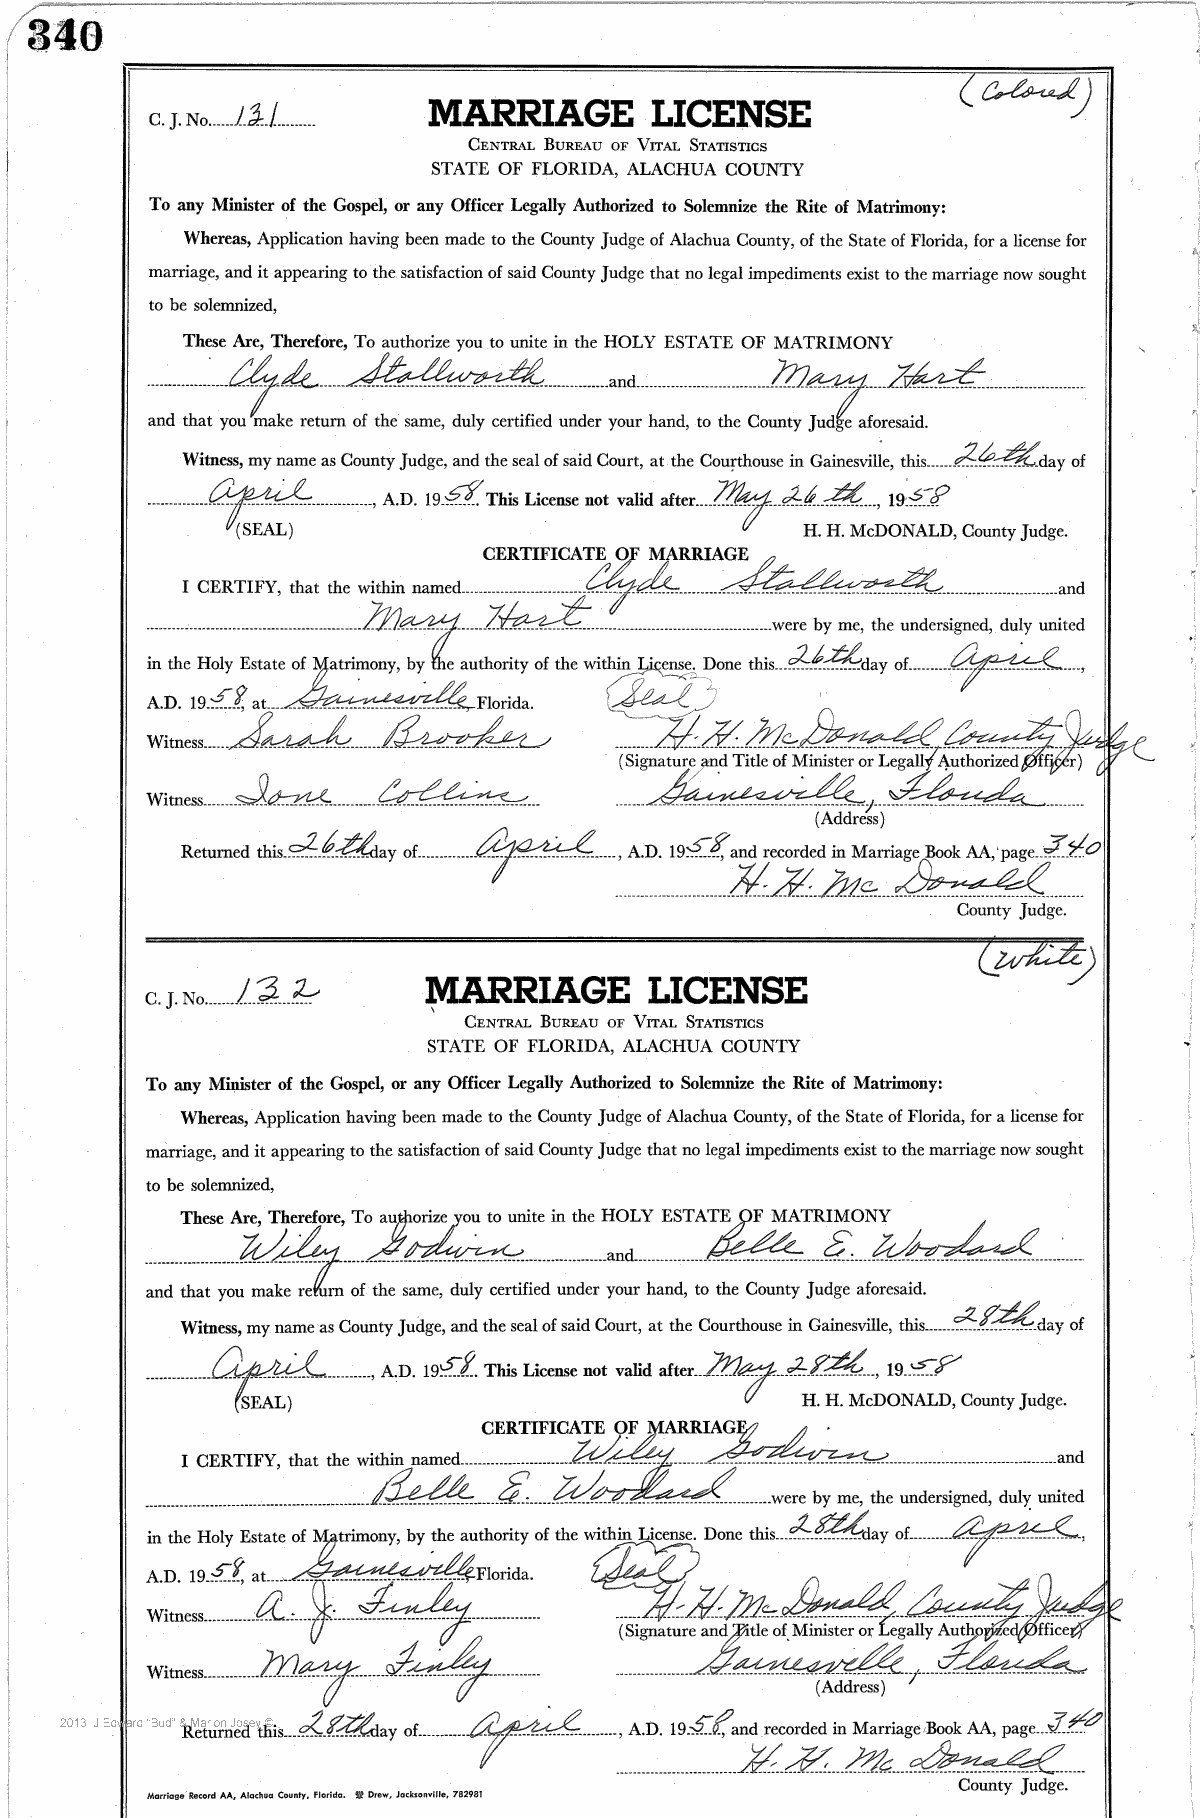 340
(Colored)
C. J. No. 131
MARRIAGE LICENSE
CENTRAL BUREAU OF VITAL STATISTICS
STATE OF FLORIDA, ALACHUA COUNTY
To any Minister of the Gospel, or any Officer Legally Authorized to Solemnize the Rite of Matrimony:
Whereas, Application having been made to the County Judge of Alachua County, of the State of Florida, for a license for
marriage, and it appearing to the satisfaction of said County Judge that no legal impediments exist to the marriage now sought
to be solemnized,
These Are, Therefore, To authorize you to unite in the HOLY ESTATE OF MATRIMONY
Clyde Stallworth and Mary Hart
and that you make return of the same, duly certified under your hand, to the County Judge aforesaid.
Witness, my name as County Judge, and the seal of said Court, at the Courthouse in Gainesville, this 26th day of
April, A.D. 1958. This License not valid after May 26th, 1958
(SEAL) H. H. McDONALD, County Judge.
CERTIFICATE OF MARRIAGE
I CERTIFY, that the within named Clyde Stallworth and
Mary Hart were by me, the undersigned, duly united
in the Holy Estate of Matrimony, by the authority of the within License. Done this 26th day of April,
A.D. 1958, at Gainesville, Florida. (Seal)
Witness Sarah Brooker H. H. McDonald, County Judge
(Signature and Title of Minister or Legally Authorized Officer)
Witness Ione Collins Gainesville, Florida
(Address)
Returned this 26th day of April, A.D. 1958, and recorded in Marriage Book AA, page 340
H. H. McDonald
County Judge.
(White)
C. J. No. 132
MARRIAGE LICENSE
CENTRAL BUREAU OF VITAL STATISTICS
STATE OF FLORIDA, ALACHUA COUNTY
To any Minister of the Gospel, or any Officer Legally Authorized to Solemnize the Rite of Matrimony:
Whereas, Application having been made to the County Judge of Alachua County, of the State of Florida, for a license for
marriage, and it appearing to the satisfaction of said County Judge that no legal impediments exist to the marriage now sought
to be solemnized,
These Are, Therefore, To authorize you to unite in the HOLY ESTATE OF MATRIMONY
Wiley Godwin and Belle E. Woodard
and that you make return of the same, duly certified under your hand, to the County Judge aforesaid.
Witness, my name as County Judge, and the seal of said Court, at the Courthouse in Gainesville, this 28th day of
April, A.D. 1958. This License not valid after May 28th, 1958
(SEAL) H. H. McDONALD, County Judge.
CERTIFICATE OF MARRIAGE
I CERTIFY, that the within named Wiley Godwin and
Belle E. Woodard were by me, the undersigned, duly united
in the Holy Estate of Matrimony, by the authority of the within License. Done this 28th day of April,
A.D. 1958, at Gainesville, Florida. (Seal)
Witness A. J. Finley H. H. McDonald, County Judge
(Signature and Title of Minister or Legally Authorized Officer)
Witness Mary Finley Gainesville, Florida
(Address)
2013 J Edward "Bud" & Marion Josey ©
Returned this 28th day of April, A.D. 1958, and recorded in Marriage Book AA, page 340
H. H. McDonald
County Judge.
Marriage Record AA, Alachua County, Florida. Drew, Jacksonville, 782981